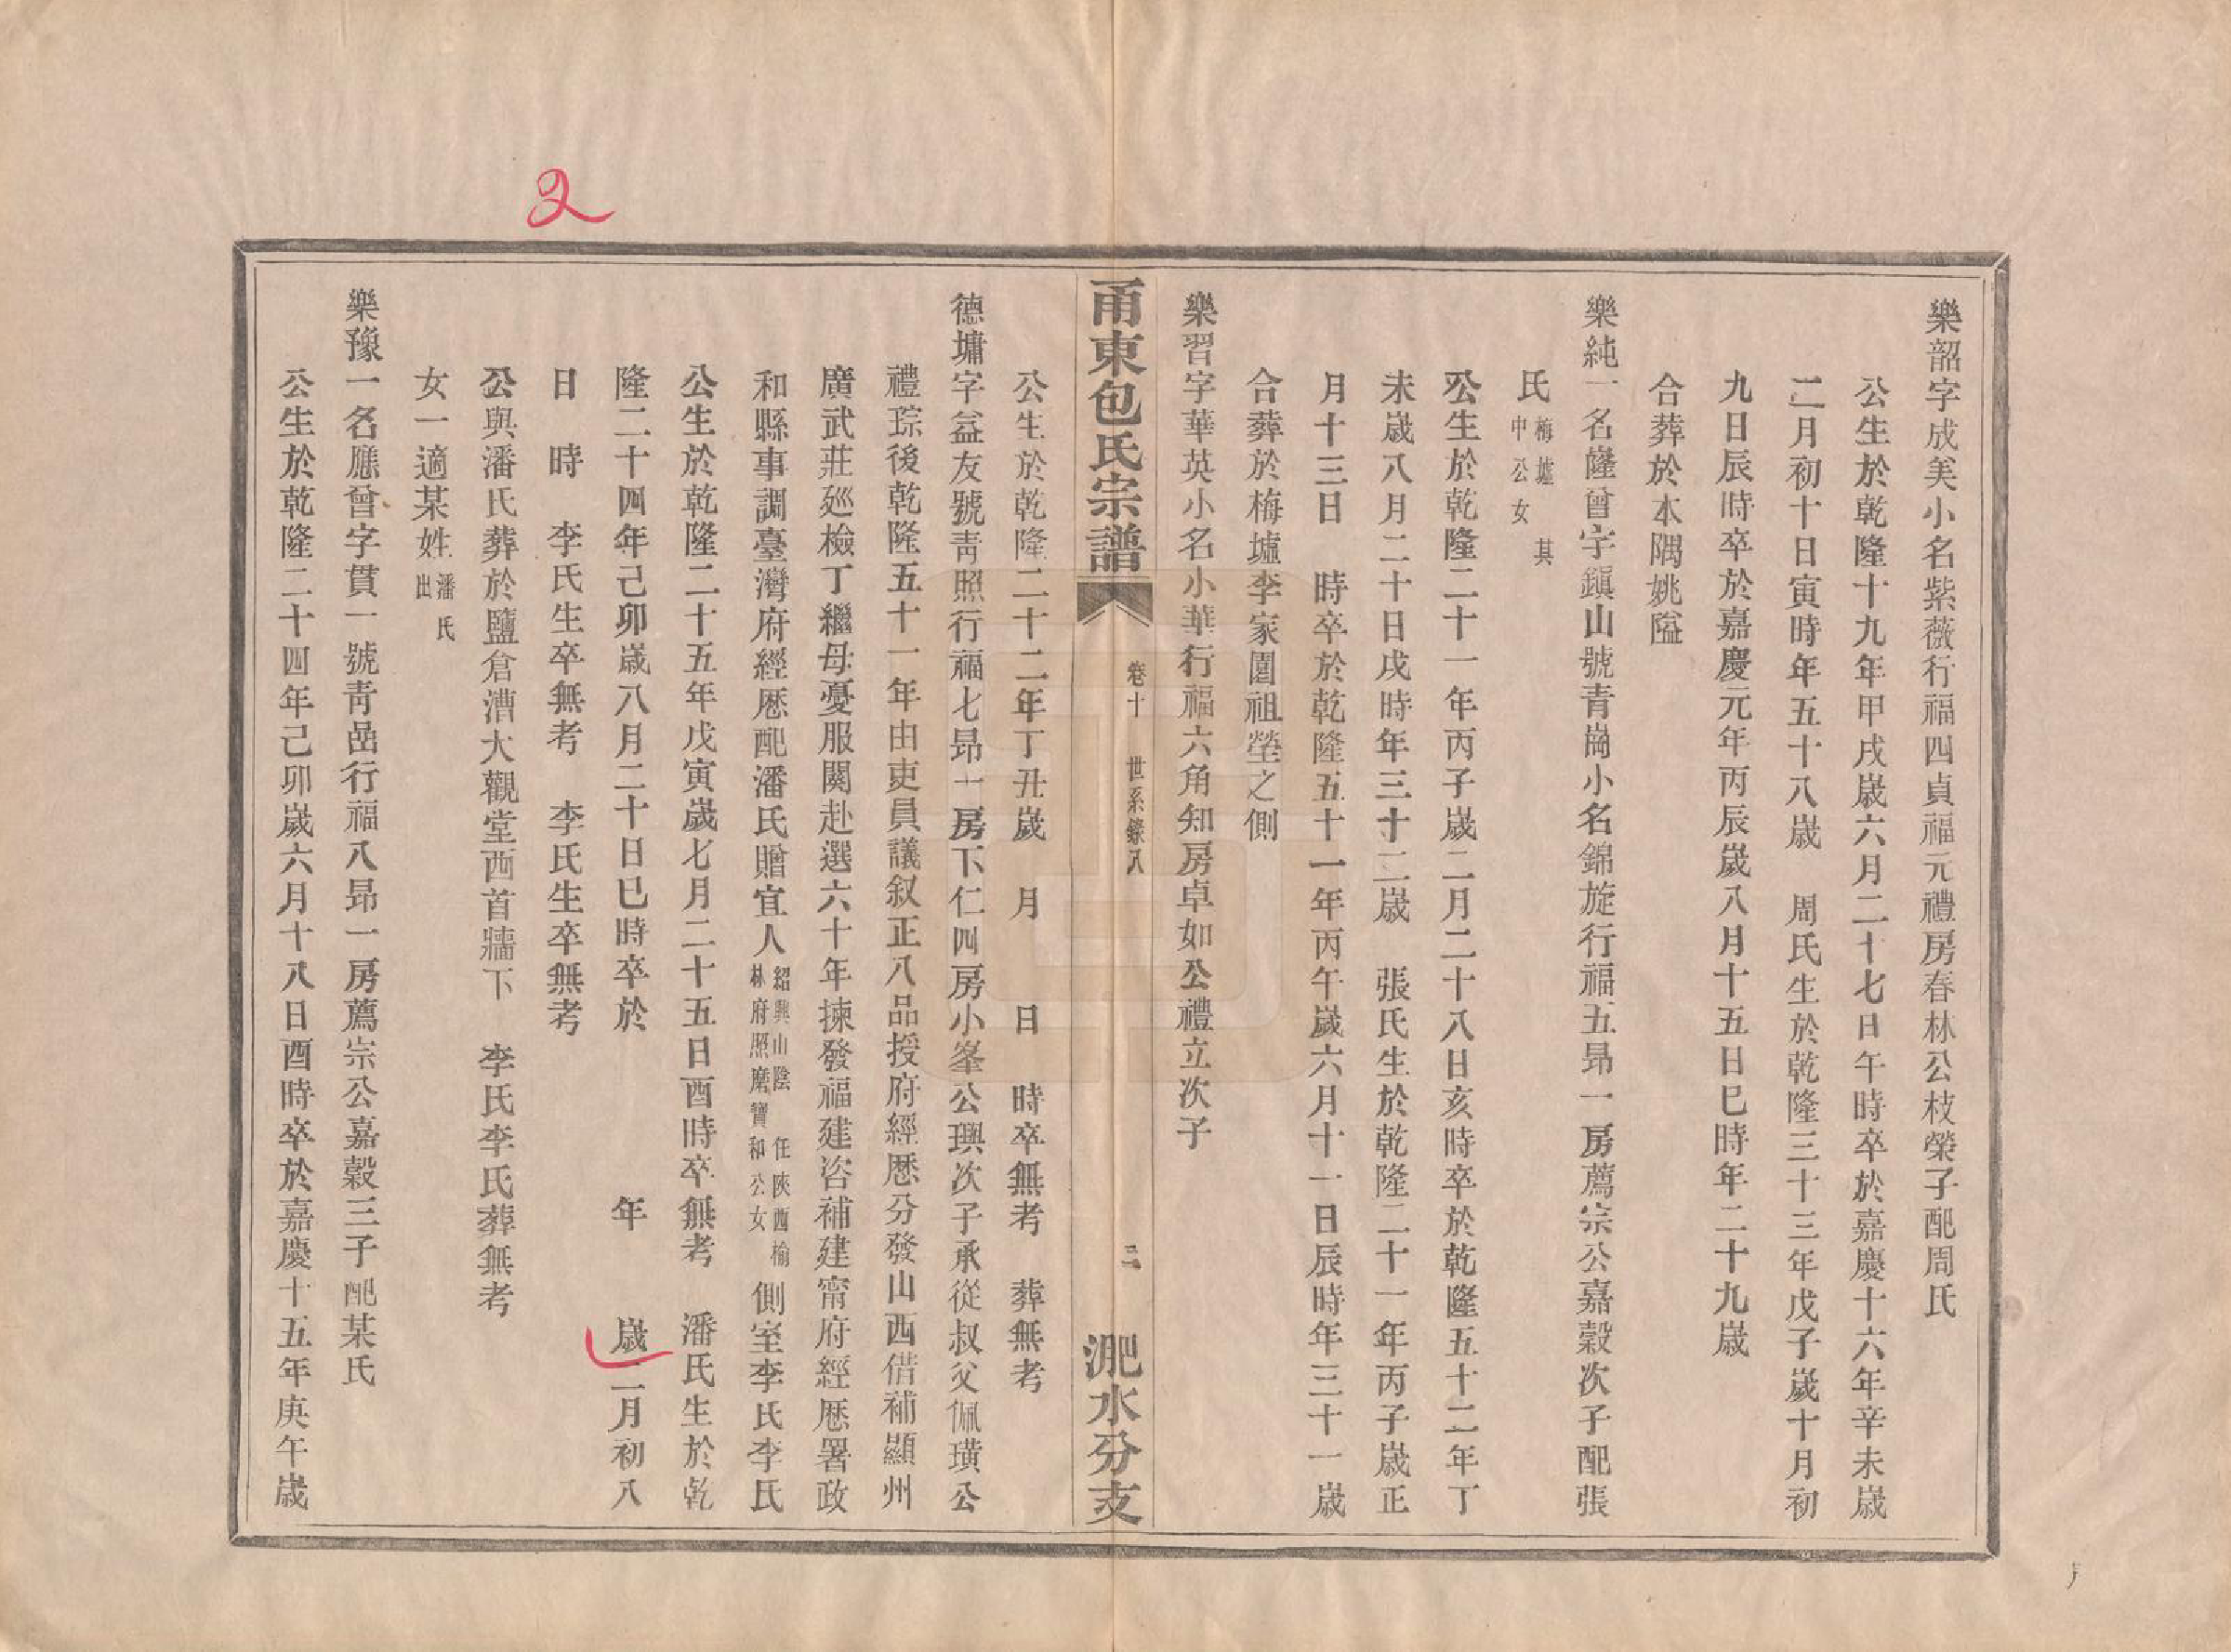 樂韶字成美小名紫薇行福四貞福元禮房春林公枝榮子配周氏
公生於乾隆十九年甲戌歲六月二十七日午時卒於嘉慶十六年辛未歲
二月初十日寅時年五十八歲 周氏生於乾隆三十三年戊子歲十月初
九日辰時卒於嘉慶元年丙辰歲八月十五日巳時年二十九歲
合葬於本隅姚隘
樂純一名隆曾字鎭山號青崗小名錦旋行福五昂一房薦宗公嘉穀次子配張
氏 梅墟 其
中公女
公生於乾隆二十一年丙子歲二月二十八日亥時卒於乾隆五十二年丁
未歲八月二十日戌時年三十二歲 張氏生於乾隆二十一年丙子歲正
月十三日 時卒於乾隆五十一年丙午歲六月十一日辰時年三十一歲
合葬於梅墟李家園祖塋之側
樂習字華英小名小華行福六角知房卓如公禮立次子
甬東包氏宗譜 卷十 世系錄八 二 淝水分支
公生於乾隆二十二年丁丑歲 月 日 時卒無考 葬無考
德墉字益友號青照行福七昂一房下仁四房小峯公璵次子承從叔父佩璜公
禮琮後乾隆五十一年由吏員議叙正八品授府經歷分發山西借補顯州
廣武莊廵檢丁繼母憂服闋赴選六十年揀發福建咨補建甯府經歷署政
和縣事調臺灣府經歷配潘氏贈宜人 紹興山陰 任陝西榆
林府照磨寶和公女 側室李氏李氏
公生於乾隆二十五年戊寅歲七月二十五日酉時卒無考 潘氏生於乾
隆二十四年己卯歲八月二十日巳時卒於 年 歲二月初八
日 時 李氏生卒無考 李氏生卒無考
公與潘氏葬於鹽倉漕大觀堂西首牆下 李氏李氏葬無考
女一適某姓 潘氏
出
樂豫一名應曾字貫一號青嵒行福八昂一房薦宗公嘉穀三子配某氏
公生於乾隆二十四年己卯歲六月十八日酉時卒於嘉慶十五年庚午歲
2